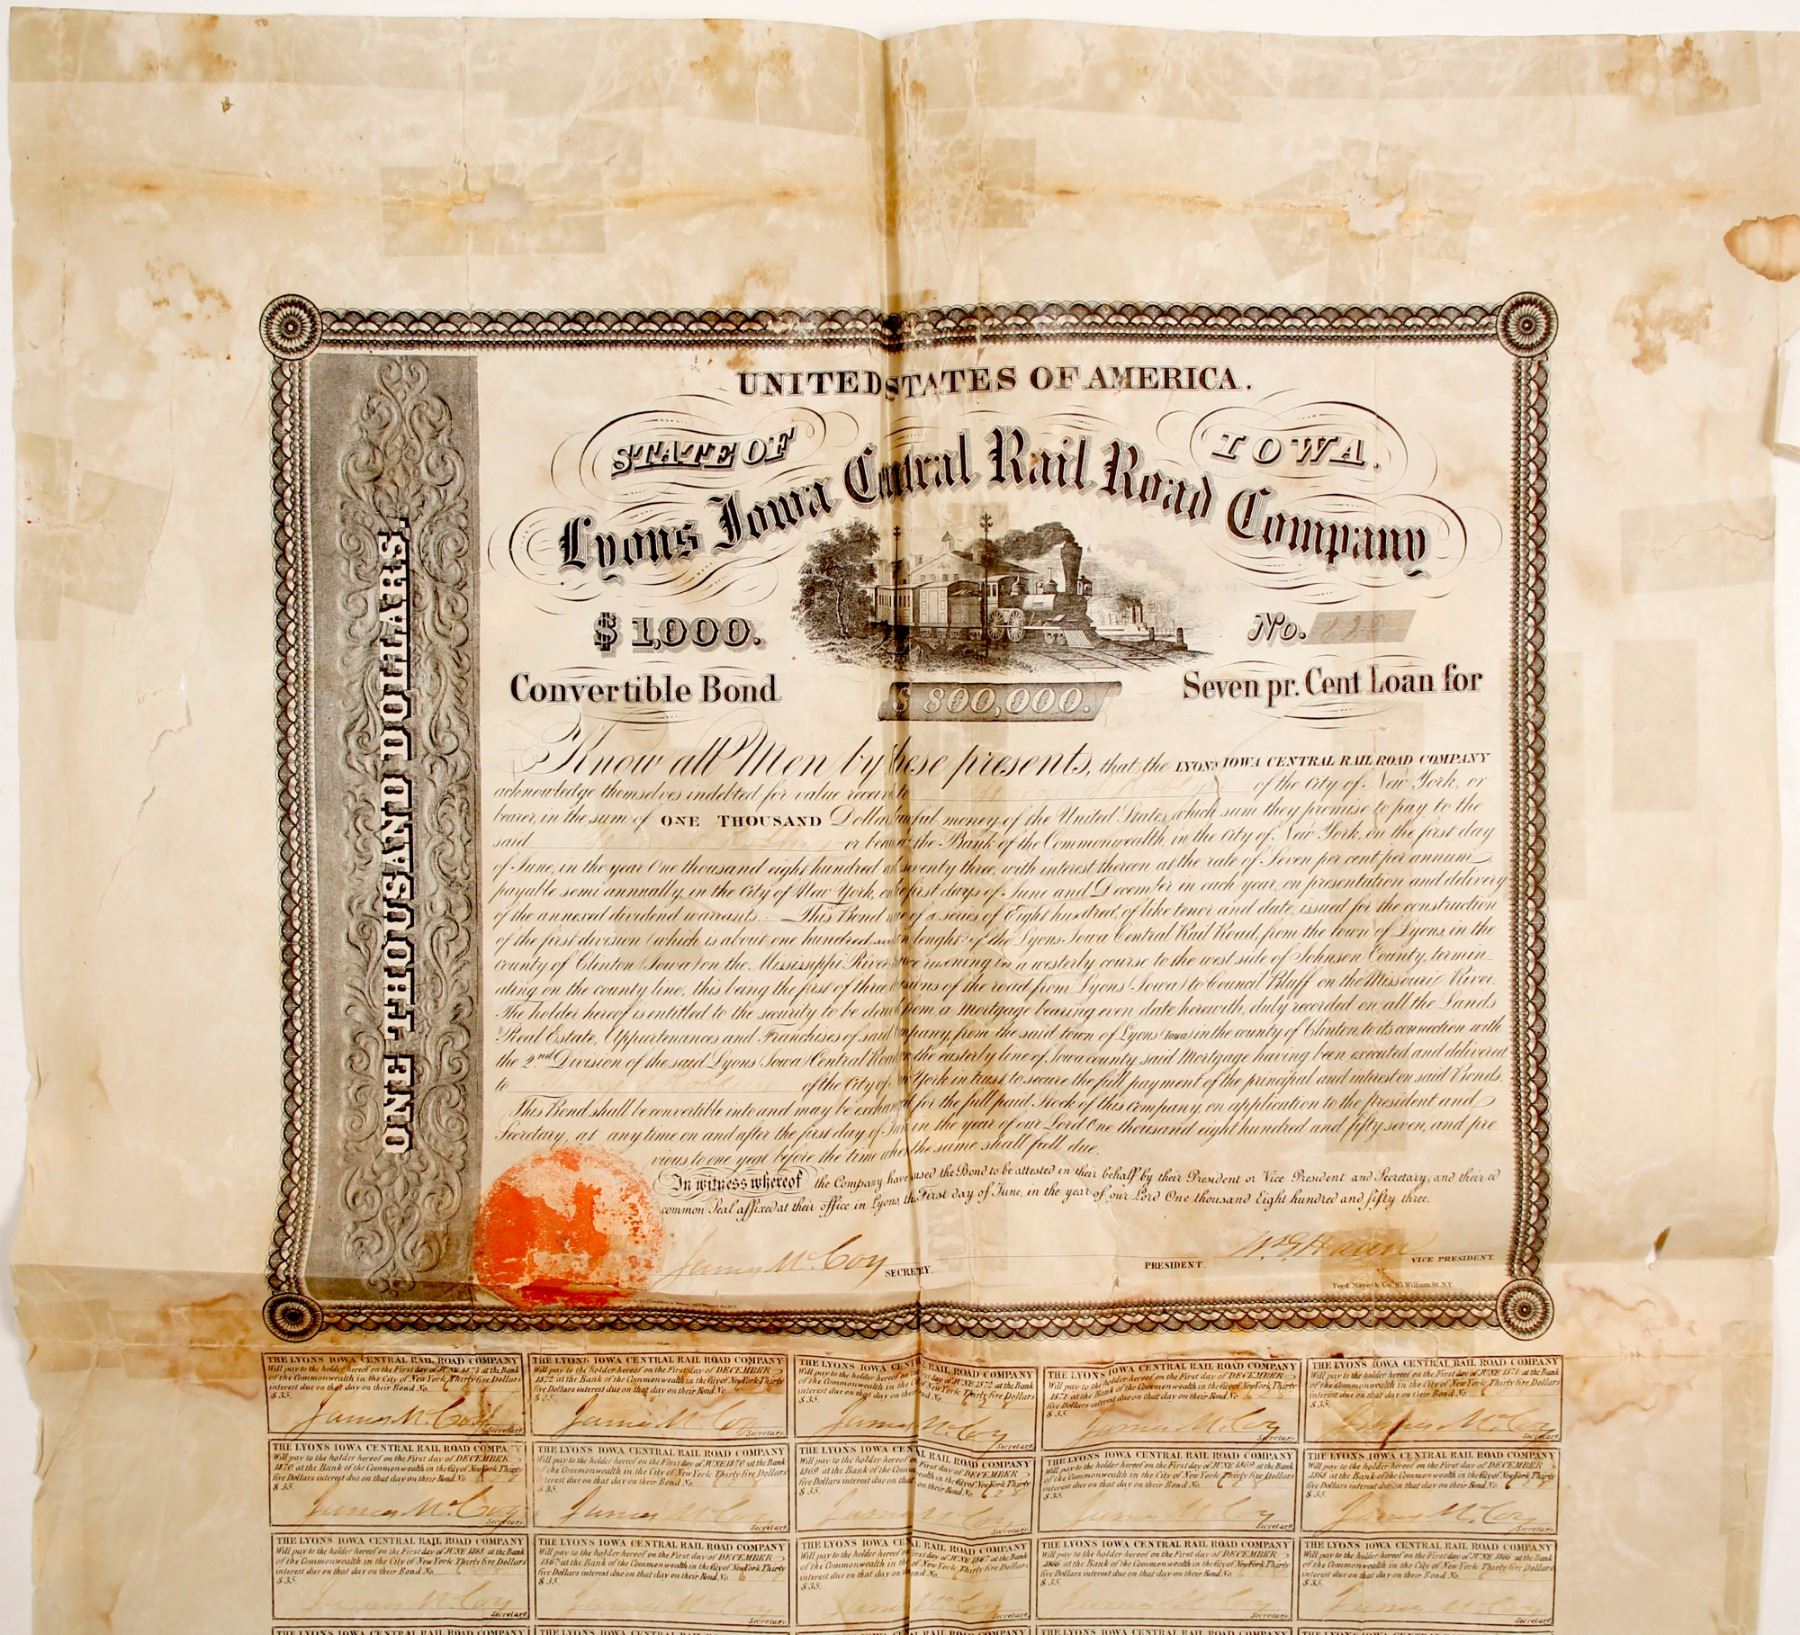 UNITED STATES OF AMERICA.
STATE OF IOWA.
Lyons Iowa Central Rail Road Company
$1,000. No. 628
Convertible Bond $800,000. Seven pr. Cent Loan for
ONE THOUSAND DOLLARS.
Know all Men by these presents, that the LYONS IOWA CENTRAL RAIL ROAD COMPANY
acknowledge themselves indebted for value receiv to of the City of New York, or
bearer, in the sum of ONE THOUSAND Dollars lawful money of the United States, which sum they promise to pay to the
said or bearer at the Bank of the Commonwealth, in the City of New York, on the first day
of June, in the year One thousand eight hundred and seventy three, with interest thereon at the rate of Seven per cent per annum
payable semi annually, in the City of New York, on the first days of June and December in each year, on presentation and delivery
of the annexed dividend warrants. This Bond one of a series of Eight hundred, of like tenor and date, issued for the construction
of the first division (which is about one hundred in lenght) of the Lyons Iowa Central Rail Road, from the town of Lyons, in the
county of Clinton (Iowa) on the Mississippi River running in a westerly course to the west side of Johnson County, termin-
ating on the county line, this being the first of three divisions of the road from Lyons (Iowa) to Council Bluff on the Missouri River.
The holder hereof is entitled to the security to be derived from a Mortgage bearing even date herewith, duly recorded on all the Lands
Real Estate, Appurtenances and Franchises of said Company, from the said town of Lyons (Iowa) in the county of Clinton, to its connection with
the 2nd Division of the said Lyons (Iowa) Central Road on the easterly line of Iowa county, said Mortgage having been executed and delivered
to of the City of New York in trust, to secure the full payment of the principal and interest on said Bonds.
This Bond shall be convertible into and may be exchanged for the full paid Stock of this Company, on application to the president and
Secretary, at any time on and after the first day of June in the year of our Lord One thousand eight hundred and fifty seven, and pre-
vious to one year before the time when the same shall fall due.
In witness whereof the Company have caused the Bond to be attested in their behalf by their President or Vice President and Secretary, and their
common Seal affixed at their office in Lyons, the First day of June, in the year of our Lord One thousand Eight hundred and fifty three.
James McCoy SECRETRY. PRESIDENT. Wm G Haun VICE PRESIDENT.
Ferd Mayer & Co. 93 William St. N.Y.
THE LYONS IOWA CENTRAL RAIL ROAD COMPANY
Will pay to the holder hereof on the First day of JUNE 1873 at the Bank
of the Commonwealth in the City of New York Thirty five Dollars
interest due on that day on their Bond No.
$35.
James McCoy
Secretary
THE LYONS IOWA CENTRAL RAIL ROAD COMPANY
Will pay to the holder hereof on the First day of DECEMBER
1872 at the Bank of the Commonwealth in the City of New York Thirty
five Dollars interest due on that day on their Bond No.
$35.
James McCoy
Secretary
THE LYONS IOWA CENTRAL RAIL ROAD COMPANY
Will pay to the holder hereof on the First day of JUNE 1872 at the Bank
of the Commonwealth in the City of New York Thirty five Dollars
interest due on that day on their Bond No. 628
$35.
James McCoy
Secretary
THE LYONS IOWA CENTRAL RAIL ROAD COMPANY
Will pay to the holder hereof on the First day of DECEMBER
1871 at the Bank of the Commonwealth in the City of New York Thirty
five Dollars interest due on that day on their Bond No. 628
$35.
James McCoy
Secretary
THE LYONS IOWA CENTRAL RAIL ROAD COMPANY
Will pay to the holder hereof on the First day of JUNE 1871 at the Bank
of the Commonwealth in the City of New York Thirty five Dollars
interest due on that day on their Bond No.
$35.
James McCoy
Secretary
THE LYONS IOWA CENTRAL RAIL ROAD COMPANY
Will pay to the holder hereof on the First day of DECEMBER
1870 at the Bank of the Commonwealth in the City of New York Thirty
five Dollars interest due on that day on their Bond No.
$35.
James McCoy
Secretary
THE LYONS IOWA CENTRAL RAIL ROAD COMPANY
Will pay to the holder hereof on the First day of JUNE 1870 at the Bank
of the Commonwealth in the City of New York Thirty five Dollars
interest due on that day on their Bond No. 628
$35.
James McCoy
Secretary
THE LYONS IOWA CENTRAL RAIL ROAD COMPANY
Will pay to the holder hereof on the First day of DECEMBER
1869 at the Bank of the Commonwealth in the City of New York Thirty
five Dollars interest due on that day on their Bond No. 628
$35.
James McCoy
Secretary
THE LYONS IOWA CENTRAL RAIL ROAD COMPANY
Will pay to the holder hereof on the First day of JUNE 1869 at the Bank
of the Commonwealth in the City of New York Thirty five Dollars
interest due on that day on their Bond No. 628
$35.
James McCoy
Secretary
THE LYONS IOWA CENTRAL RAIL ROAD COMPANY
Will pay to the holder hereof on the First day of DECEMBER
1868 at the Bank of the Commonwealth in the City of New York Thirty
five Dollars interest due on that day on their Bond No. 628
$35.
James McCoy
Secretary
THE LYONS IOWA CENTRAL RAIL ROAD COMPANY
Will pay to the holder hereof on the First day of JUNE 1868 at the Bank
of the Commonwealth in the City of New York Thirty five Dollars
interest due on that day on their Bond No.
$35.
James McCoy
Secretary
THE LYONS IOWA CENTRAL RAIL ROAD COMPANY
Will pay to the holder hereof on the First day of DECEMBER
1867 at the Bank of the Commonwealth in the City of New York Thirty
five Dollars interest due on that day on their Bond No.
$35.
James McCoy
Secretary
THE LYONS IOWA CENTRAL RAIL ROAD COMPANY
Will pay to the holder hereof on the First day of JUNE 1867 at the Bank
of the Commonwealth in the City of New York Thirty five Dollars
interest due on that day on their Bond No.
$35.
James McCoy
Secretary
THE LYONS IOWA CENTRAL RAIL ROAD COMPANY
Will pay to the holder hereof on the First day of DECEMBER
1866 at the Bank of the Commonwealth in the City of New York Thirty
five Dollars interest due on that day on their Bond No.
$35.
James McCoy
Secretary
THE LYONS IOWA CENTRAL RAIL ROAD COMPANY
Will pay to the holder hereof on the First day of JUNE 1866 at the Bank
of the Commonwealth in the City of New York Thirty five Dollars
interest due on that day on their Bond No.
$35.
James McCoy
Secretary
THE LYONS IOWA CENTRAL RAIL ROAD COMPANY
THE LYONS IOWA CENTRAL RAIL ROAD COMPANY
RAIL ROAD COMPANY
THE LYONS IOWA CENTRAL RAIL ROAD COMPANY
THE LYONS IOWA CENTRAL RAIL ROAD COMPANY